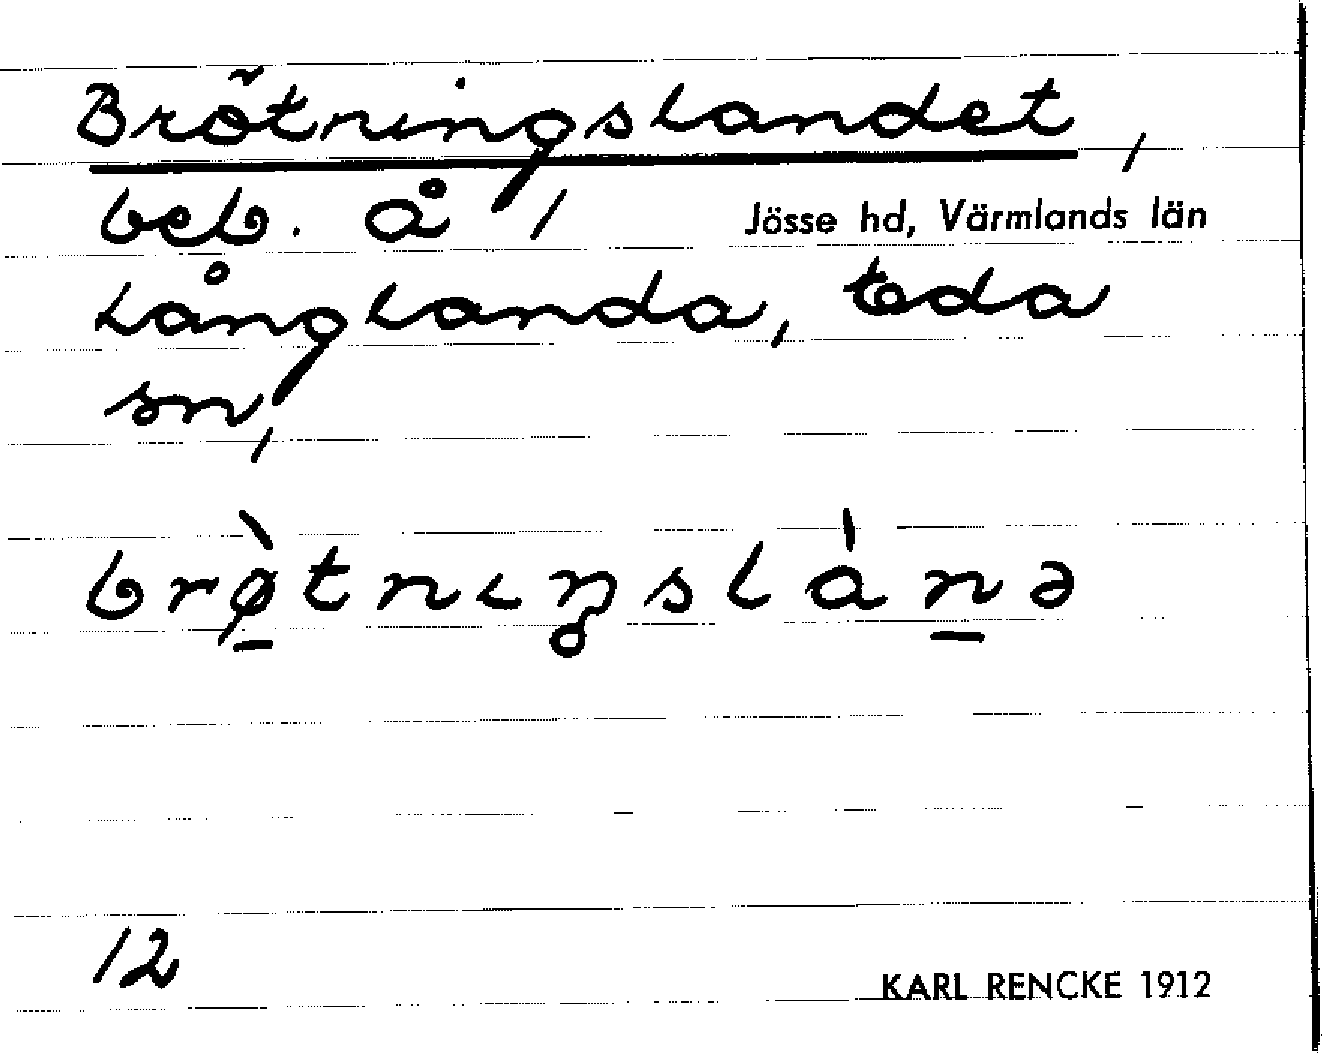 Brötningslandet,
beb. å / Jösse hd, Värmlands län
Långlanda, Eda
sn,
brø̱̀tnɩŋslàṉə
12
KARL RENCKE 1912